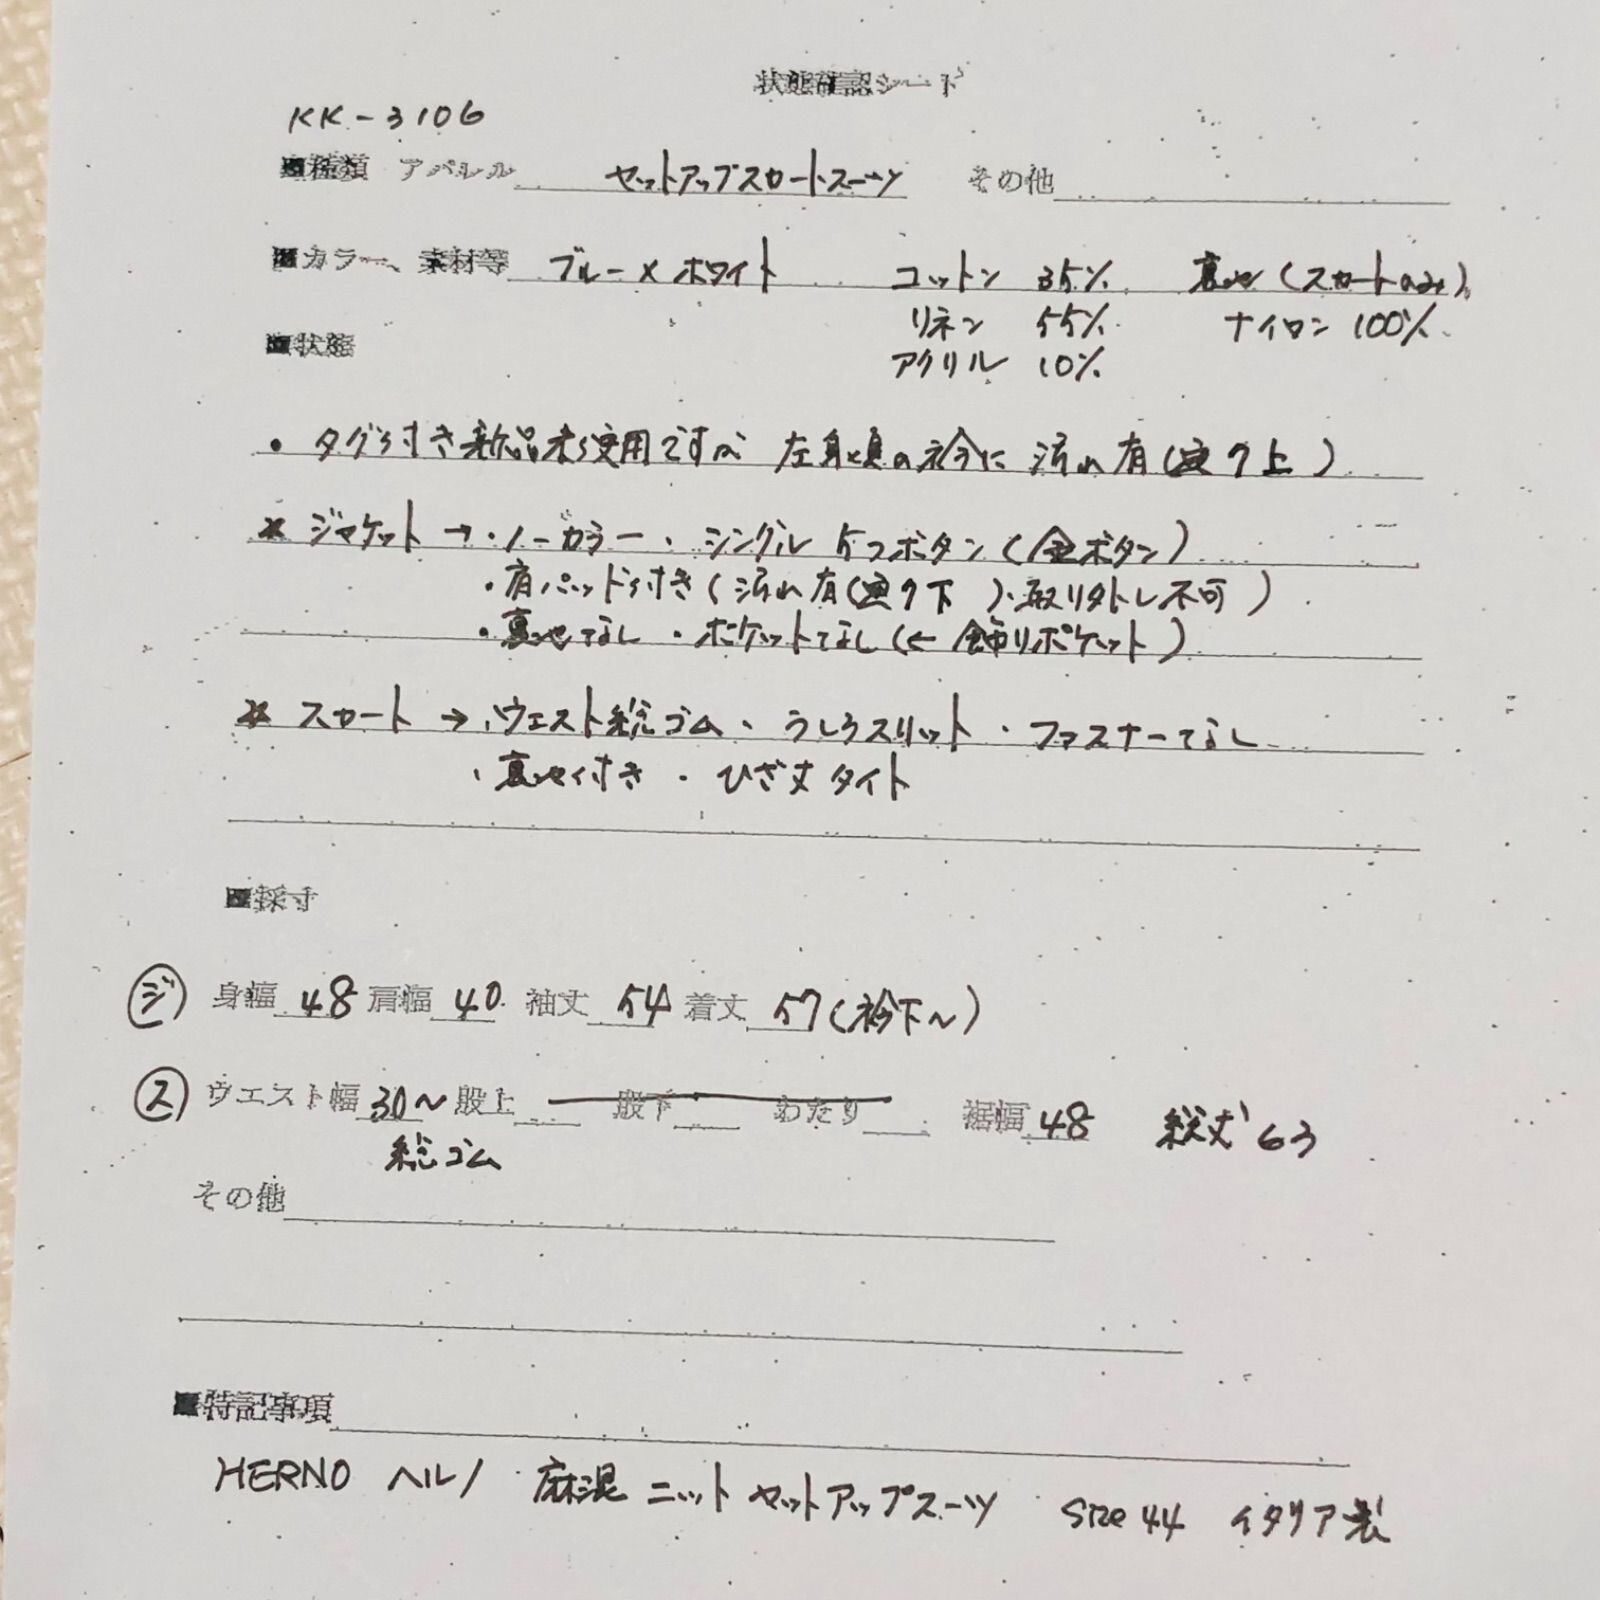 状態確認シート
KK-3106
■種類 アパレル セットアップスカートスーツ その他
■カラー、素材等 ブルー×ホワイト コットン 35% 裏地(スカートのみ)
リネン 55% ナイロン 100%
■状態 アクリル 10%
・タグ付き新品未使用ですが 左身頃の衿に汚れ有(画7上)
* ジャケット → ・ノーカラー・シングル5つボタン(金ボタン)
・肩パット付き(汚れ有(画7下)・取り外し不可)
・裏地なし ・ポケットなし(←飾りポケット)
* スカート → ・ウエスト総ゴム・うしろスリット・ファスナーなし
・裏地付き ・ひざ丈タイト
■採寸
ジ 身幅 48 肩幅 40 袖丈 54 着丈 57(衿下~)
ス ウエスト幅 30~ 股上 股下 わたり 裾幅 48 総丈 63
総ゴム
その他
■特記事項
HERNO ヘルノ 麻混 ニット セットアップスーツ size 44 イタリア製